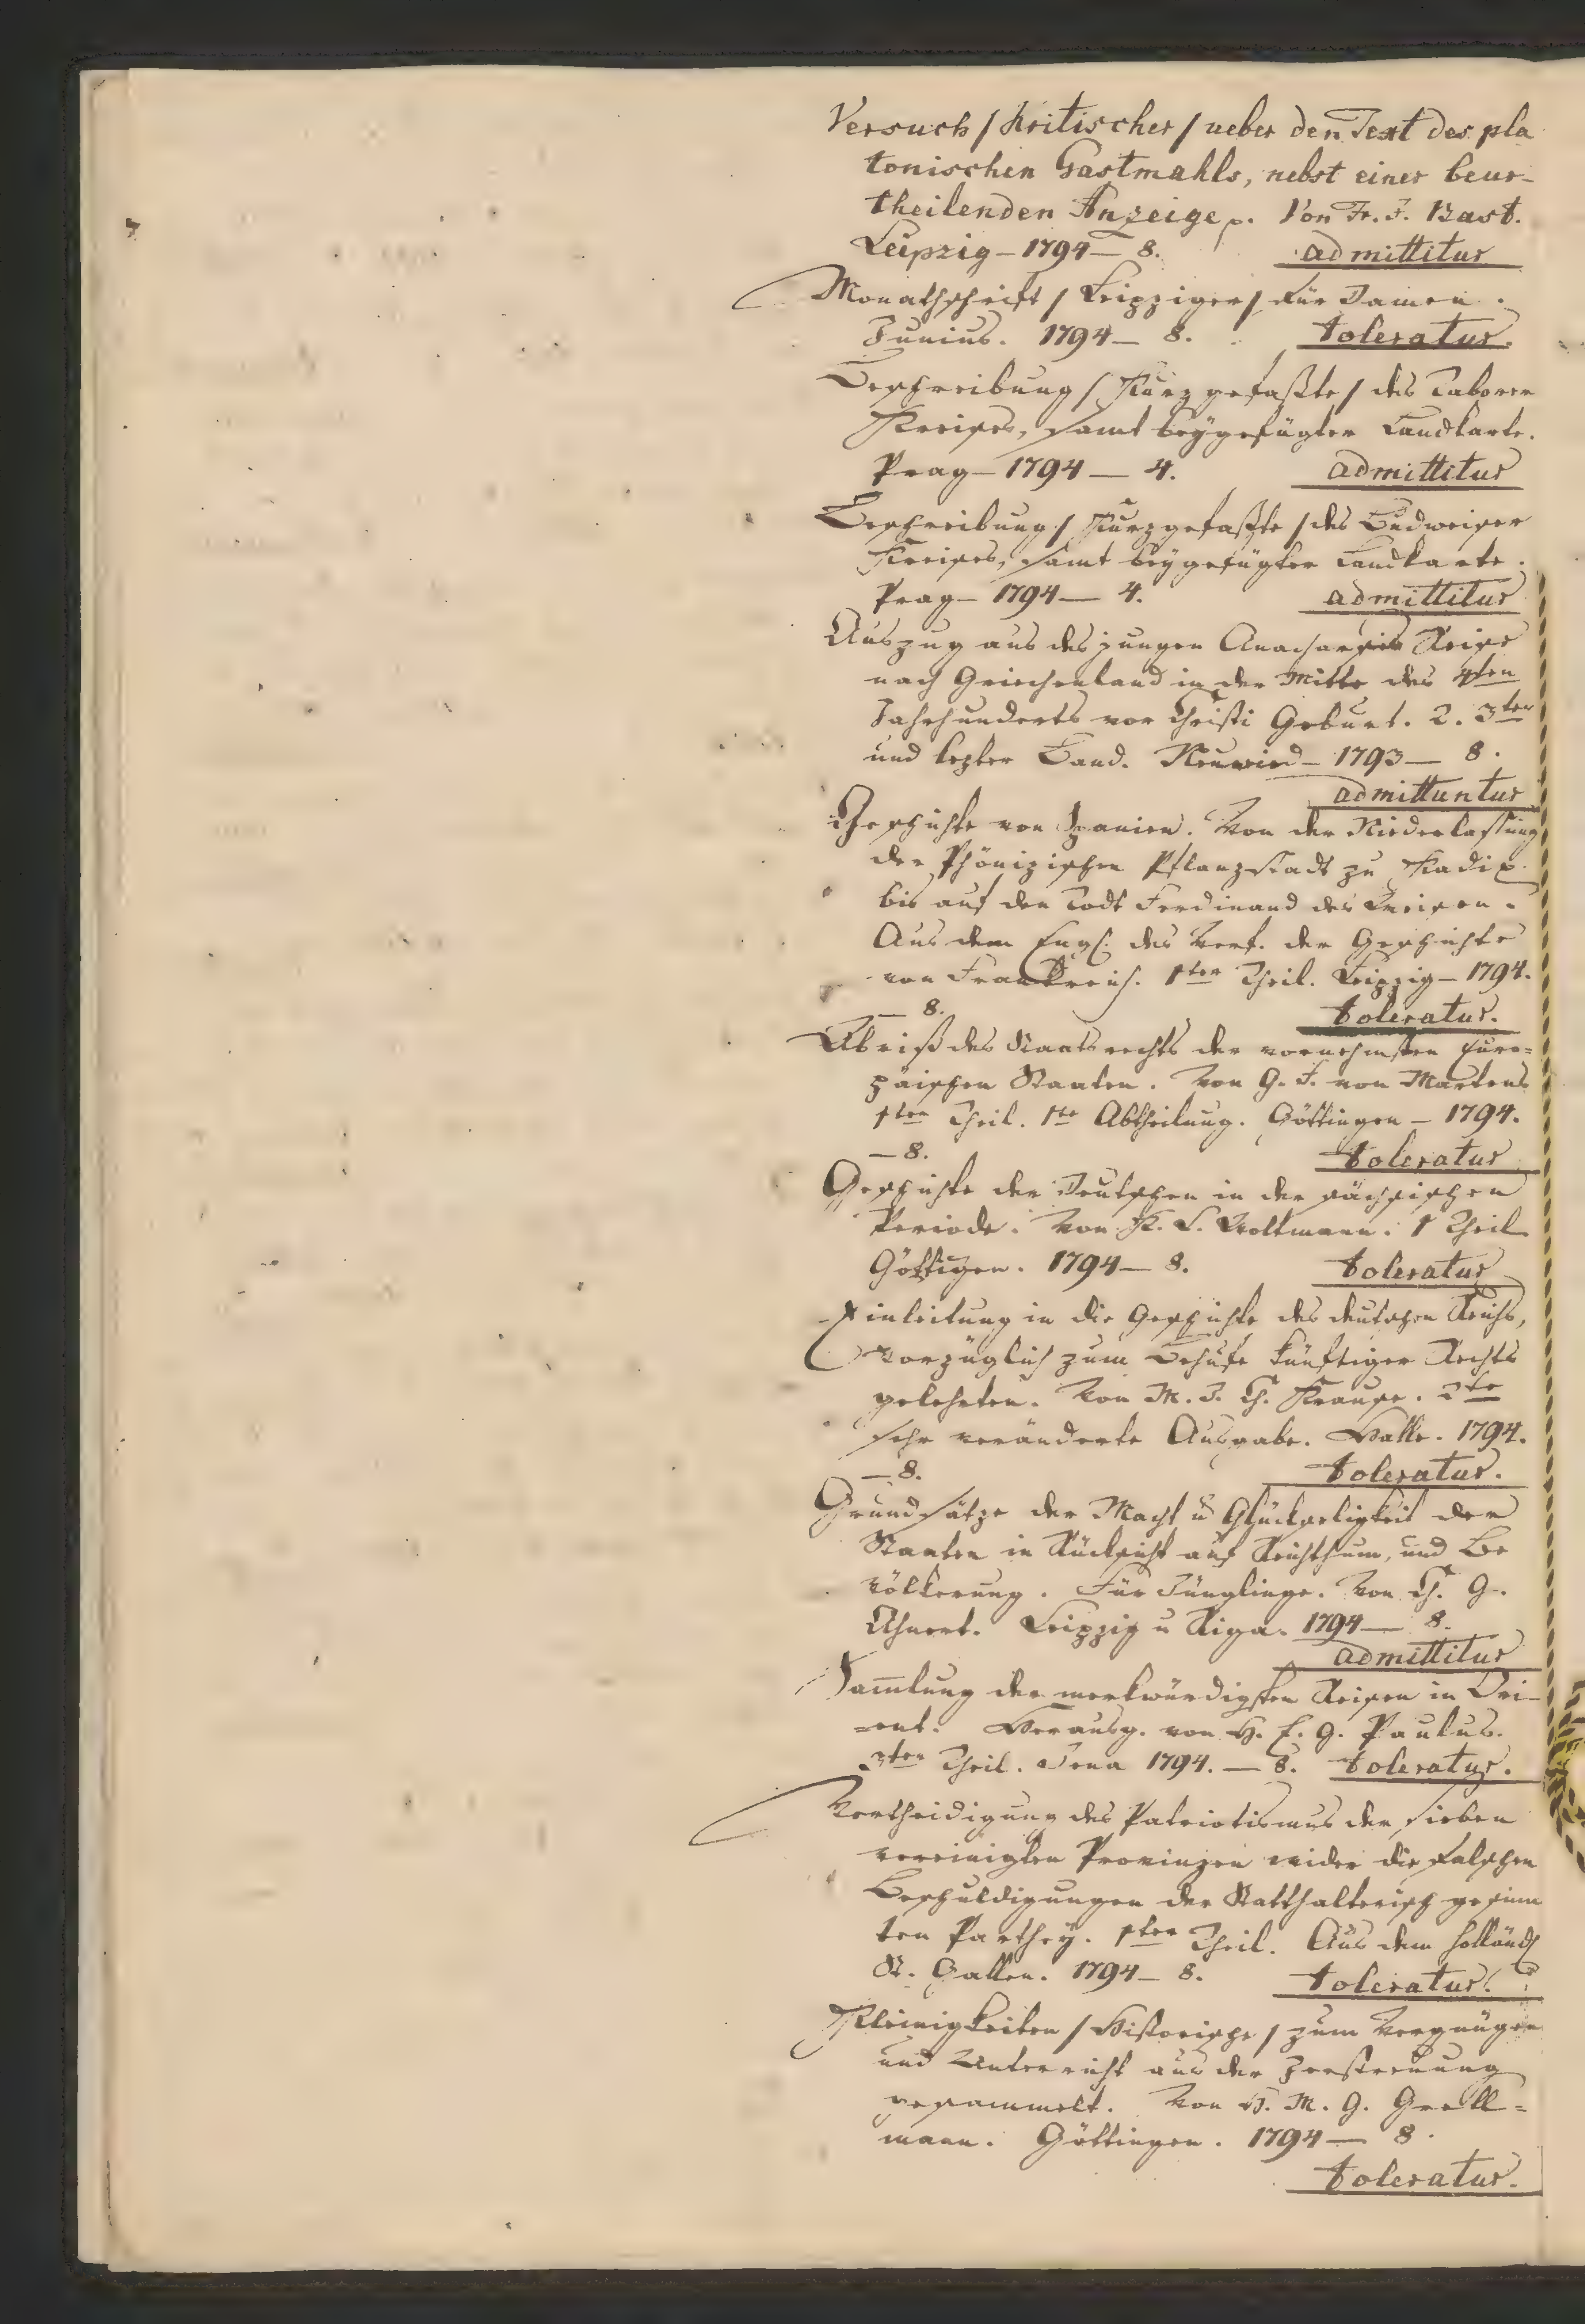 Versuch / Kritischer / ueber den Text des pla
tonischen Gastmahls, nebst einer beur-
theilenden Anzeige p. Von Fr. J. Bast.
Leipzig – 1794 – 8. admittitur
Monathschrift / Leipziger / für Damen.
Junius. 1794 – 8. toleratur.
Beschreibung / Kurz gefaßte / des Taborer
Kreises, samt beygefügter Landkarte.
Prag – 1794 – 4. admittitur
Beschreibung / Kurzgefaßte / des Budweiser
Kreises, samt beygefügter Landkarte.
Prag – 1794 – 4. admittitur
Auszug aus des jungen Anacharsis Reise
nach Griechenland in der Mitte des 4ten
Jahrhunderts vor Christi Geburt. 2. 3ter
und lezter Band. Neuwied – 1793 – 8.
admittuntur
Geschichte von Spanien. Von der Niederlassung
der Phönizischen Pflanzstadt zu Kadix
bis auf den Todt Ferdinand des Weisen.
Aus dem Engl. des Verf. der Geschichte
von Frankreich. 1ter Theil. Leipzig – 1794.
– 8. toleratur.
Abriß des Staatsrechts der vornehmsten Euro-
päischen Staaten. Von G. F. von Martens
1ter Theil. 1te Abtheilung. Göttingen – 1794.
– 8. toleratur
Geschichte der Deutschen in der sächsischen
Periode. Von K. L. Woltmann. 1 Theil
Göttigen. 1794 – 8. toleratur
Einleitung in die Geschichte des deutschen Reichs,
vorzüglich zum Behufe künftiger Rechts
gelehrten. Von M. J. Ch. Krause. 2te
sehr veränderte Ausgabe. Halle. 1794.
– 8. toleratur.
Grundsätze der Macht u Glückseligkeit der
Staaten in Rücksicht auf Reichthum, und Be
völkerung. Für Jünglinge. Von Ch. G.
Ahnert. Leipzig u Riga. 1794 – 8.
admittitur
Sam̄lung der merkwürdigsten Reisen in Ori-
-ent. Herausg. von H. E. G. Paulus.
3ter Theil. Jena 1794. – 8. toleratur.
Vertheidigung des Patriotismus der sieben
vereinigten Provinzen wider die falschen
Beschuldigungen der Statthalterisch gesinn
ten Parthey. 1ter Theil. Aus dem Holländ
St. Gallen. 1794 – 8. toleratur.
Kleinigkeiten / Historische / zum Vergnügen
und Unterricht aus der Zerstreuung
gesammelt. Von H. M. G. Grell-
mann. Göttingen. 1794 – 8.
toleratur.